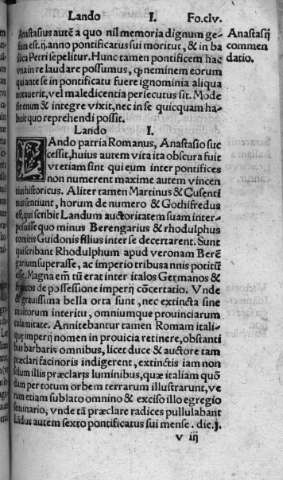 Lando I. Fo.clv.
Anastasius autē a quo nil memoria dignum ge-
stum est.ij. anno pontificatus sui moritur, & in ba
silica Petri sepelitur. Hunc tamen pontificem hac
vna in re laudare possumus, q neminem eorum
quiante se in pontificatu fuere ignominia aliqua
notauerit, vel maledicentia perlecutus sit. Mode
ste enim & integre vixit, nec in se quicquam ha-
buit quo reprehendi possit.
Anastasij
commen
datio.
Lando I.
LAndo patria Romanus, Anastasio suc
cessit, huius autem vita ita obscura fuit
vt etiam sint qui eum inter pontifices
non numerent maxime autem vincen
tius historicus. Aliter tamen Martinus & Cusenti
nus sentiunt, horum de numero & Gothifredus
est, qui scribit Landum auctoritatem suam inter-
posuisse quo minus Berengarius & rhodulphus
comitis Guidonis filius inter se decertarent. Sunt
qui scribant Rhodulphum apud veronam Berē
garium superasse, ac imperio tribus annis potitū
esse. Magna em tū erat inter italos Germanos &
de possessione imperij cōcertatio. Vnde
& grauissima bella orta sunt, nec extincta sine
multorum interitu, omniumque prouinciarum
calamitate. Annitebantur tamen Romam itali-
que imperij nomen in prouicia retinere, obstanti
bus barbaris omnibus, licet duce & auctore tam
præclari facinoris indigerent, extinctis iam non
solum illis præclaris luminibus, quæ italiam quō
dam per totum orbem terrarum illustrarunt, ve
rum etiam sublato omnino & exciso illo egregio
seminario, vnde tā præclare radices pullulabant
Lādus autem sexto pontificatus sui mense. die.j.
v iij